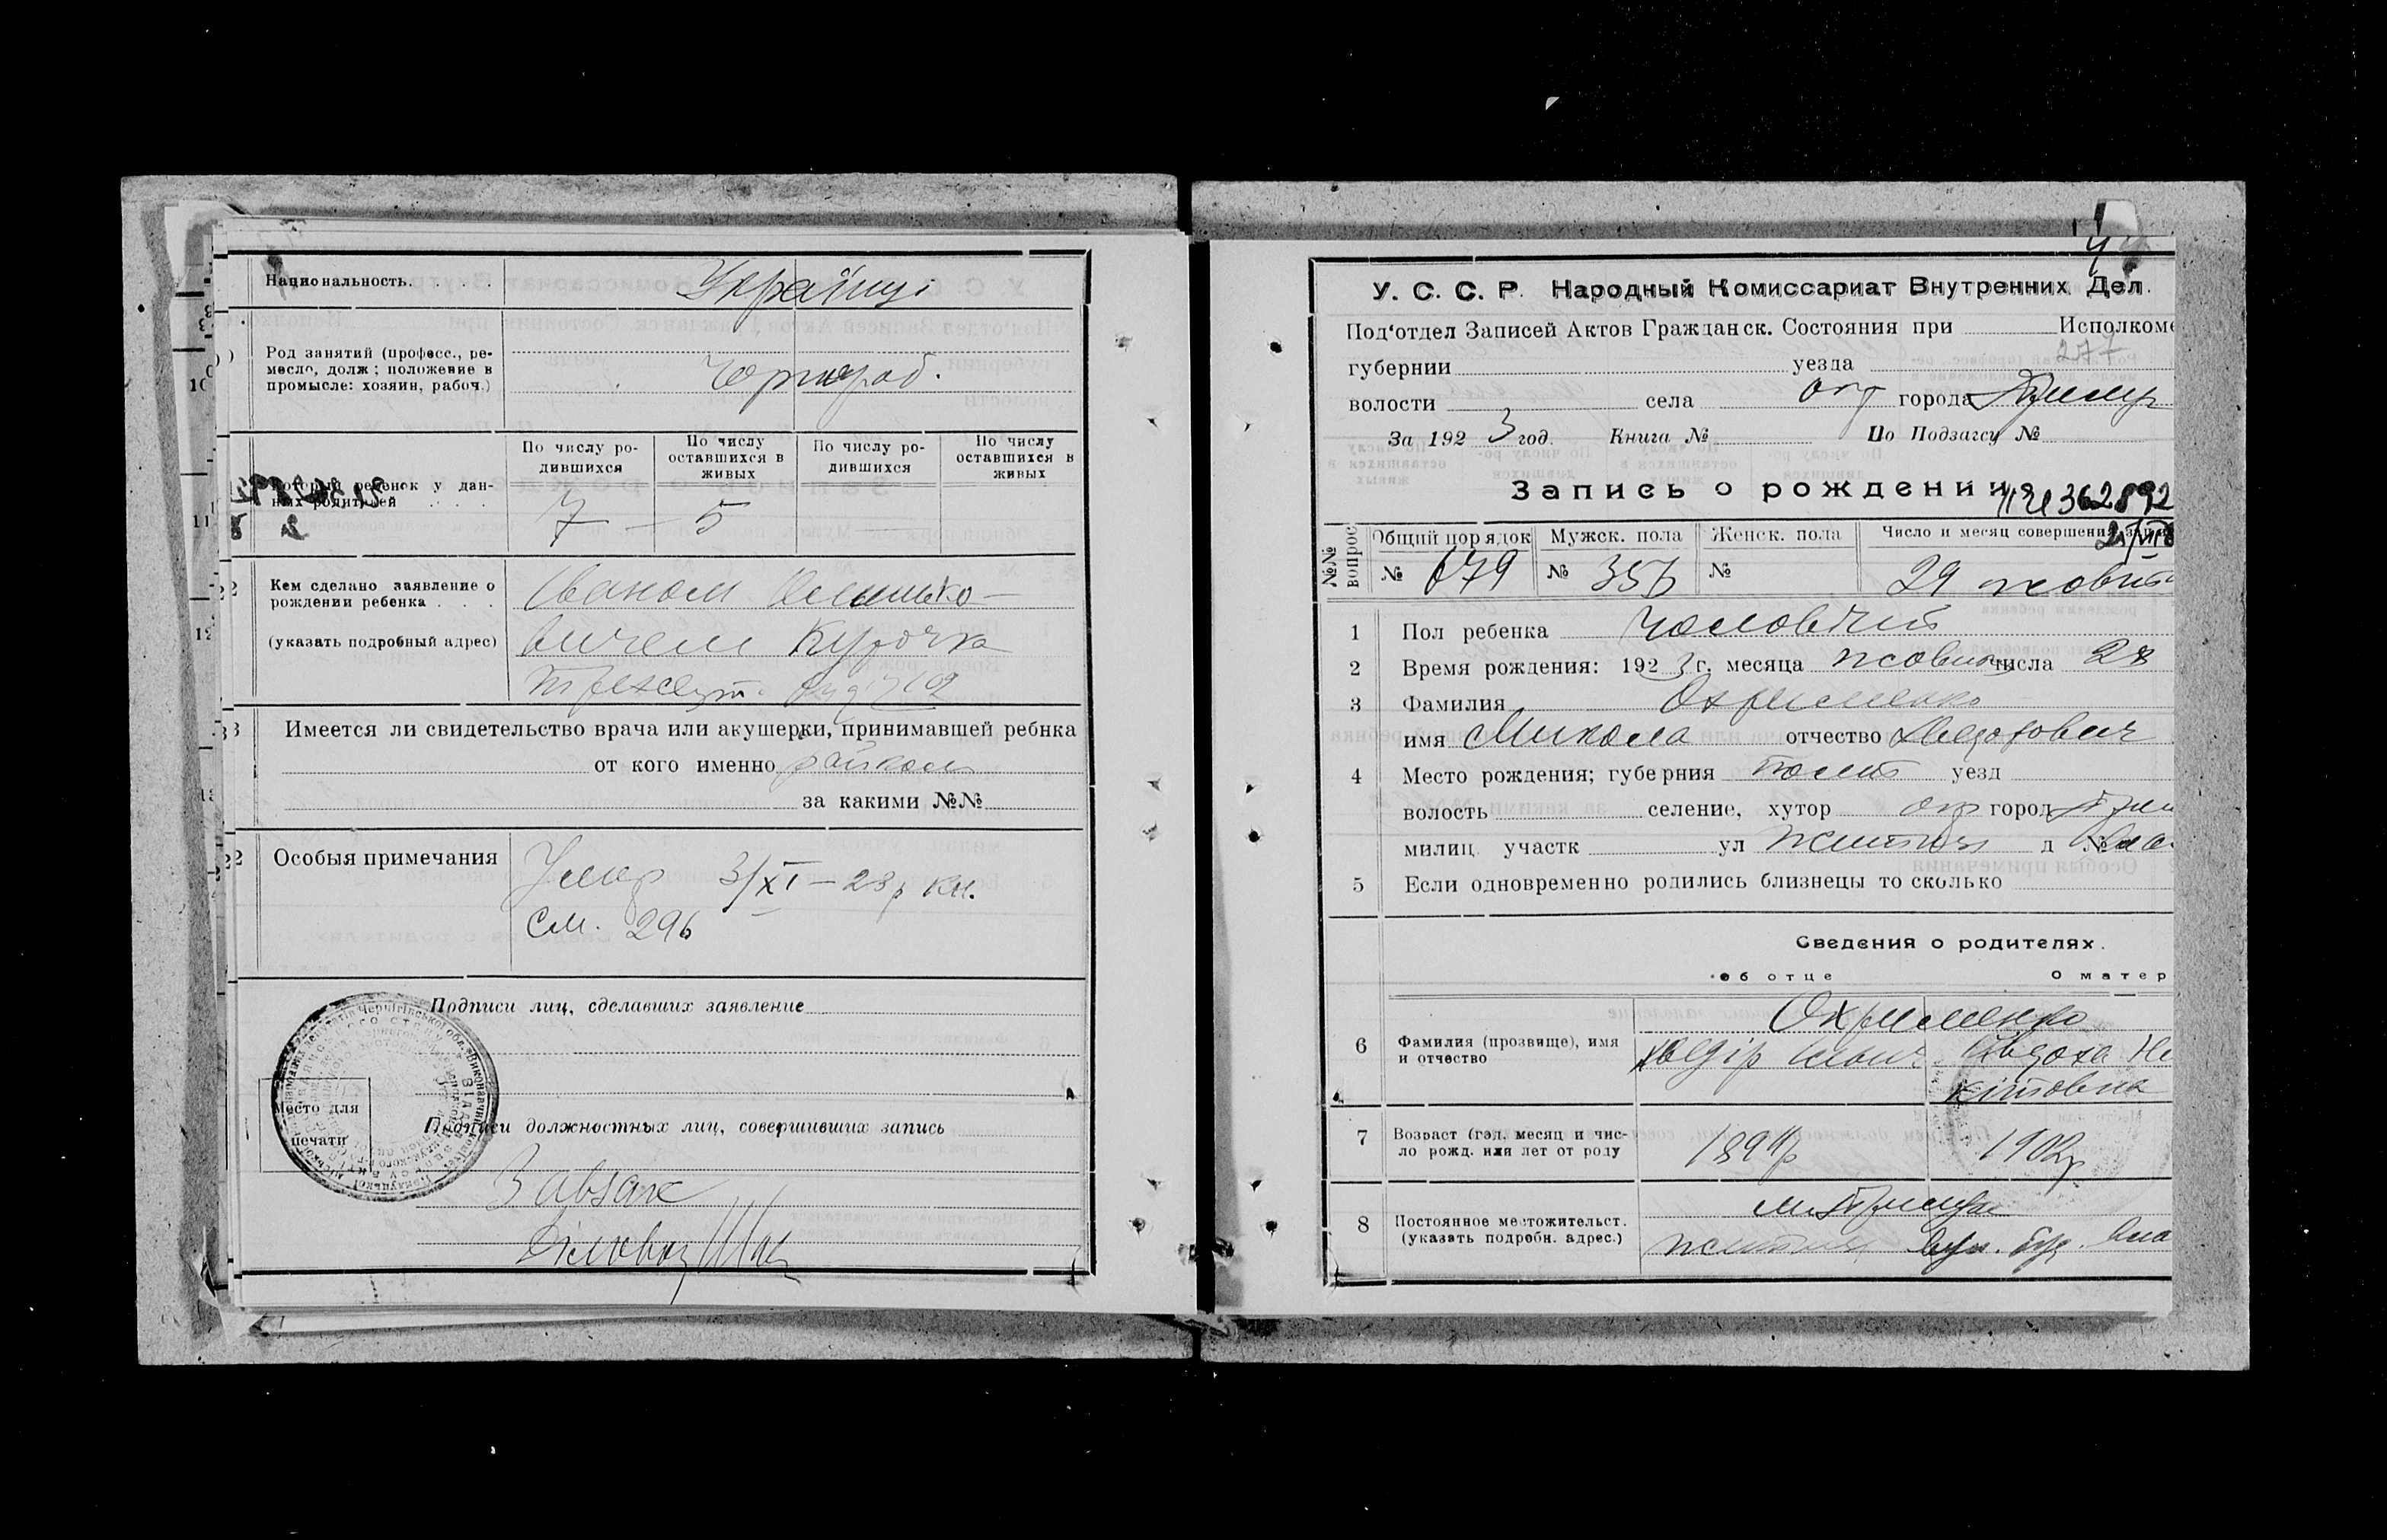 Национальность. Українці
Род занятий (професс., ре-
месло, долж; положение в
промысле: хозяин, рабоч.)
Чорнораб.
По числу ро-
дившихся
По числу
оставшихся в
живых
По числу ро-
дившихся
По числу
оставшихся в
живых
Который ребенок у дан-
ных родителей
7 — 5
Кем сделано заявление о
рождении ребенка
(указать подробный адрес)
Іваном
вичем Курочка
Имеется ли свидетельство врача или акушерки, принимавшей ребнка
от кого именно
за какими №№
Особыя примечания
Умер 3/XI—23р кн.
см. 296
Подписи лиц, сделавших заявление
Место для
печати
Подписи должностных лиц, совершивших запись
Завзаг
Діловод
У. С. С. Р. Народный Комиссариат Внутренних Дел.
Под‘отдел Записей Актов Гражданск. Состояния при Исполкоме
277
губернии уезда
волости села города
За 1923 год. Книга № По Подзагсу №
Запись о рождении
362892
№№ вопрос
Общий порядок Мужск. пола Женск. пола Число и месяц совершения
№ 679 № 356 № 29 жовт
1 Пол ребенка чоловічий
2 Время рождения: 1923 г. месяца жовтня числа 28
3 Фамилия Охрименко
имя Микола отчество Хведорович
4 Место рождения; губерния Полт уезд
волость селение, хутор город
милиц. участк ул д №
5 Если одновременно родились близнецы то сколько
Сведения о родителях.
об отце О матер
6 Фамилия (прозвище), имя
и отчество
Охрименко
Хведір Ільич
Явдоха Ни
кітовна
7 Возраст (год, месяц и чис-
ло рожд. или лет от роду
1902р
8 Постоянное местожительст.
(указать подробн. адрес.)
м. Прилуки
вул. Буд.